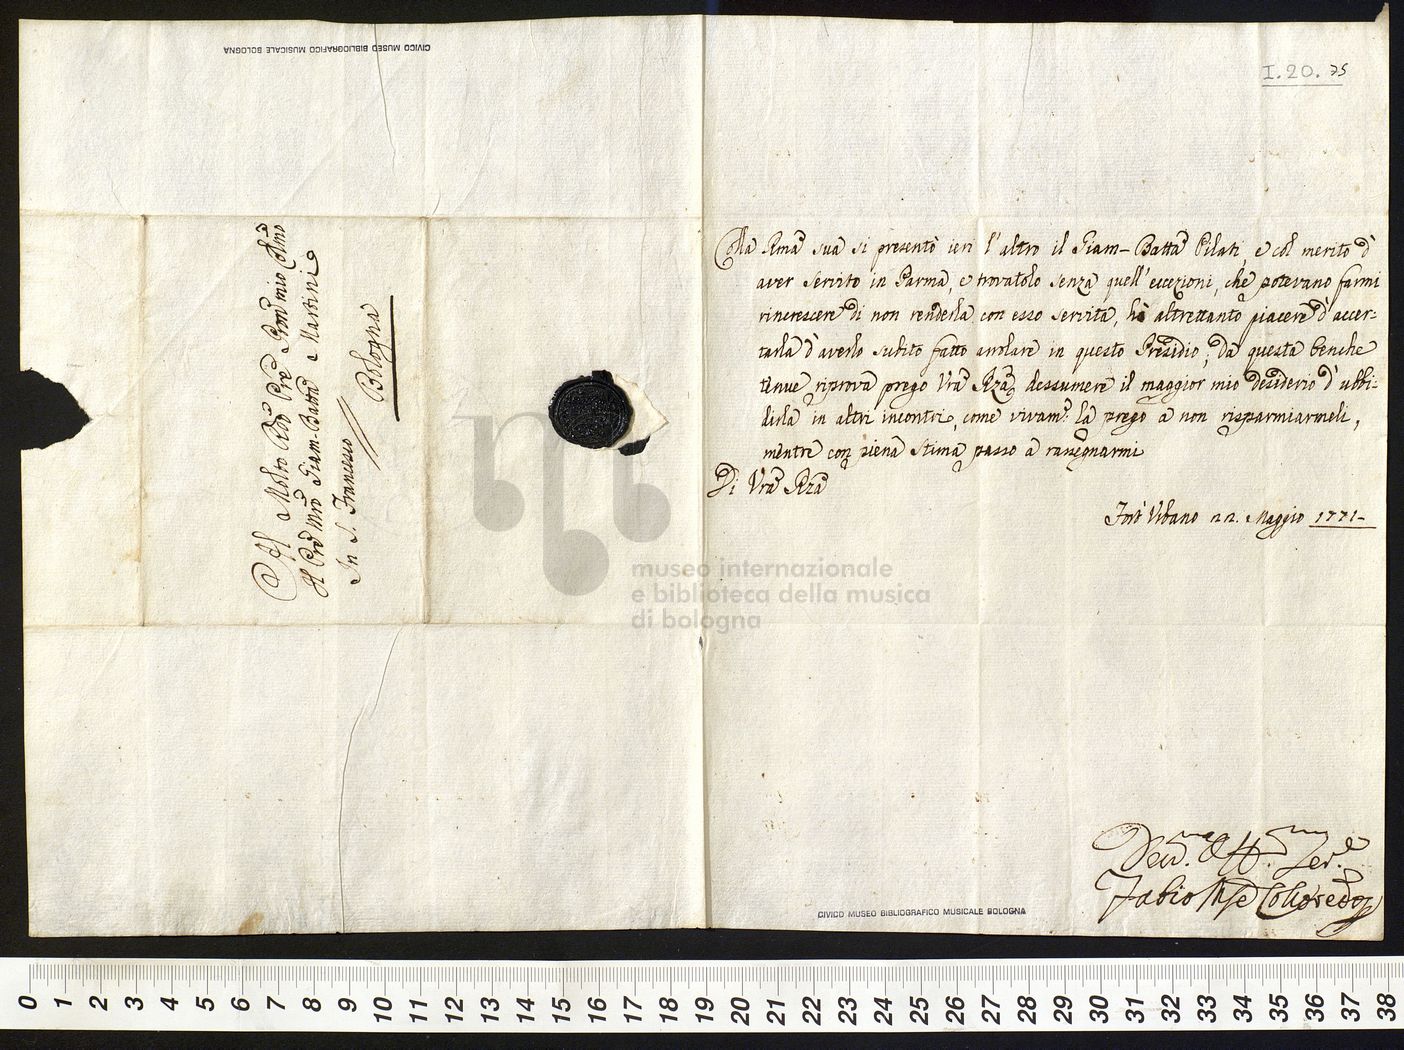 I.20.75
Colla Sma sua si presentò ieri l'altro il Giam-Batta Pilati, e col merito d'
aver servito in Parma, e trovatolo senza quell'eccezioni, che potevano farmi
rincrescere di non renderla con esso servita, hò altrettanto piacere d'accer-
tarla d'averlo subito fatto arolare in questo Presidio; da questa benche
tenue riprova prego Vrã Rzã dessumere il maggior mio desiderio d'ubbi-
dirla in altri incontri, come vivam.e la prego a non risparmiarmeli,
mentre con piena stima passo a rassegnarmi
Di Vrã Rzã
Fort'Urbano 22. Maggio 1771-
Fabio Mse Colloredo
CIVICO MUSEO BIBLIOGRAFICO MUSICALE BOLOGNA
Al Molto Rdo Pre Pron mio Colmo
Il Pre Mro Giam-Batta Martini
In S. Francesco
Bologna
CIVICO MUSEO BIBLIOGRAFICO MUSICALE BOLOGNA
museo internazionale
e biblioteca della musica
di bologna
0 1 2 3 4 5 6 7 8 9 10 11 12 13 14 15 16 17 18 19 20 21 22 23 24 25 26 27 28 29 30 31 32 33 34 35 36 37 38